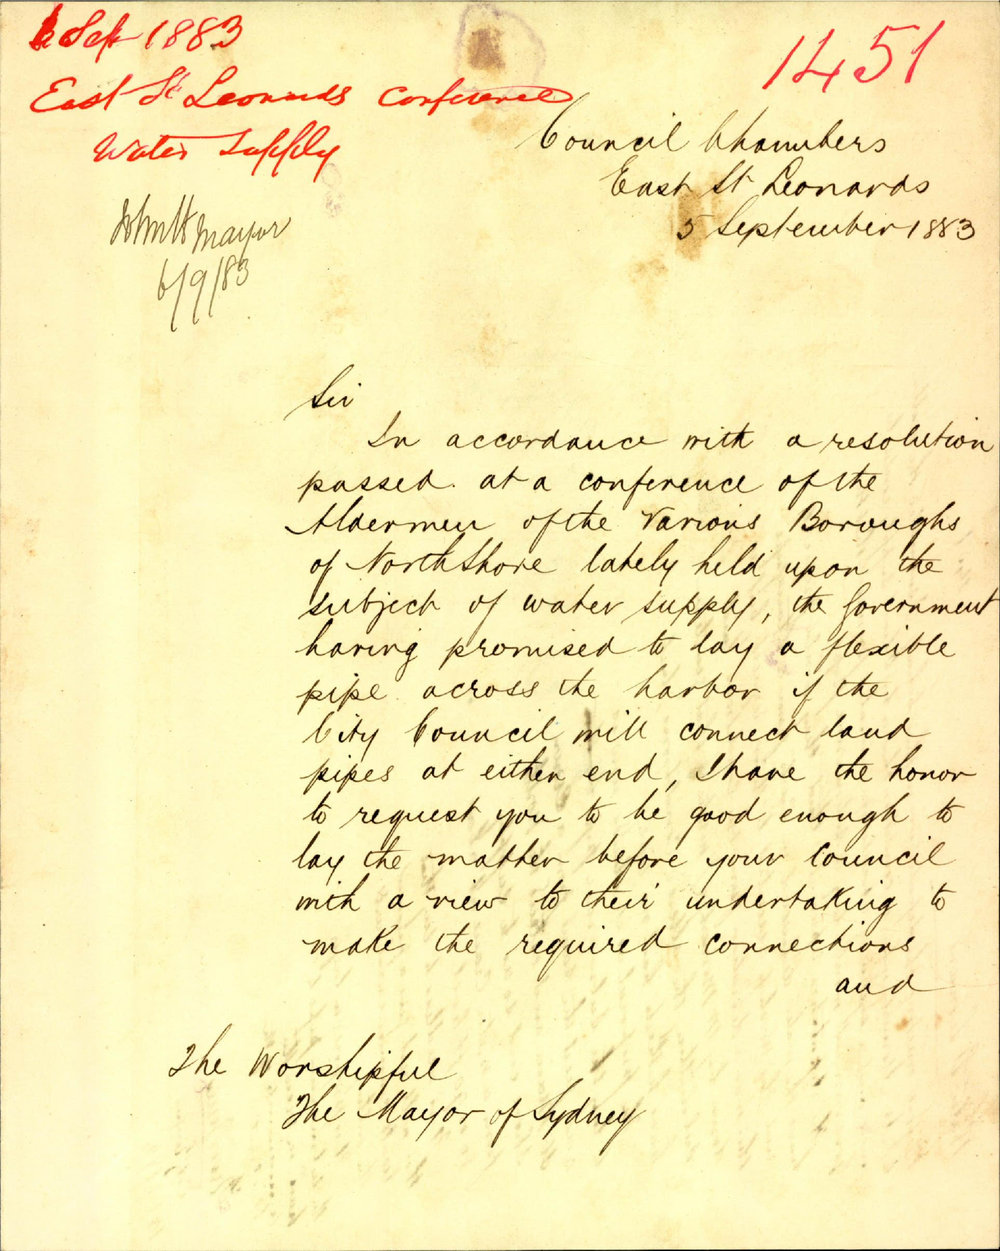 6 Sep 1883
East St Leonards Conference
Water Supply
1451
Mayor
6/9/83
Council Chambers
East St Leonards
5 September 1883
Sir
In accordance with a resolution
passed at a conference of the
Aldermen of the Various Boroughs
of North Shore lately held upon the
subject of water supply, the Government
having promised to lay a flexible
pipe across the harbor if the
City Council will connect land
pipes at either end, I have the honor
to request you to be good enough to
lay the matter before your Council
with a view to their undertaking to
make the required connections
and
The Worshipful
The Mayor of Sydney